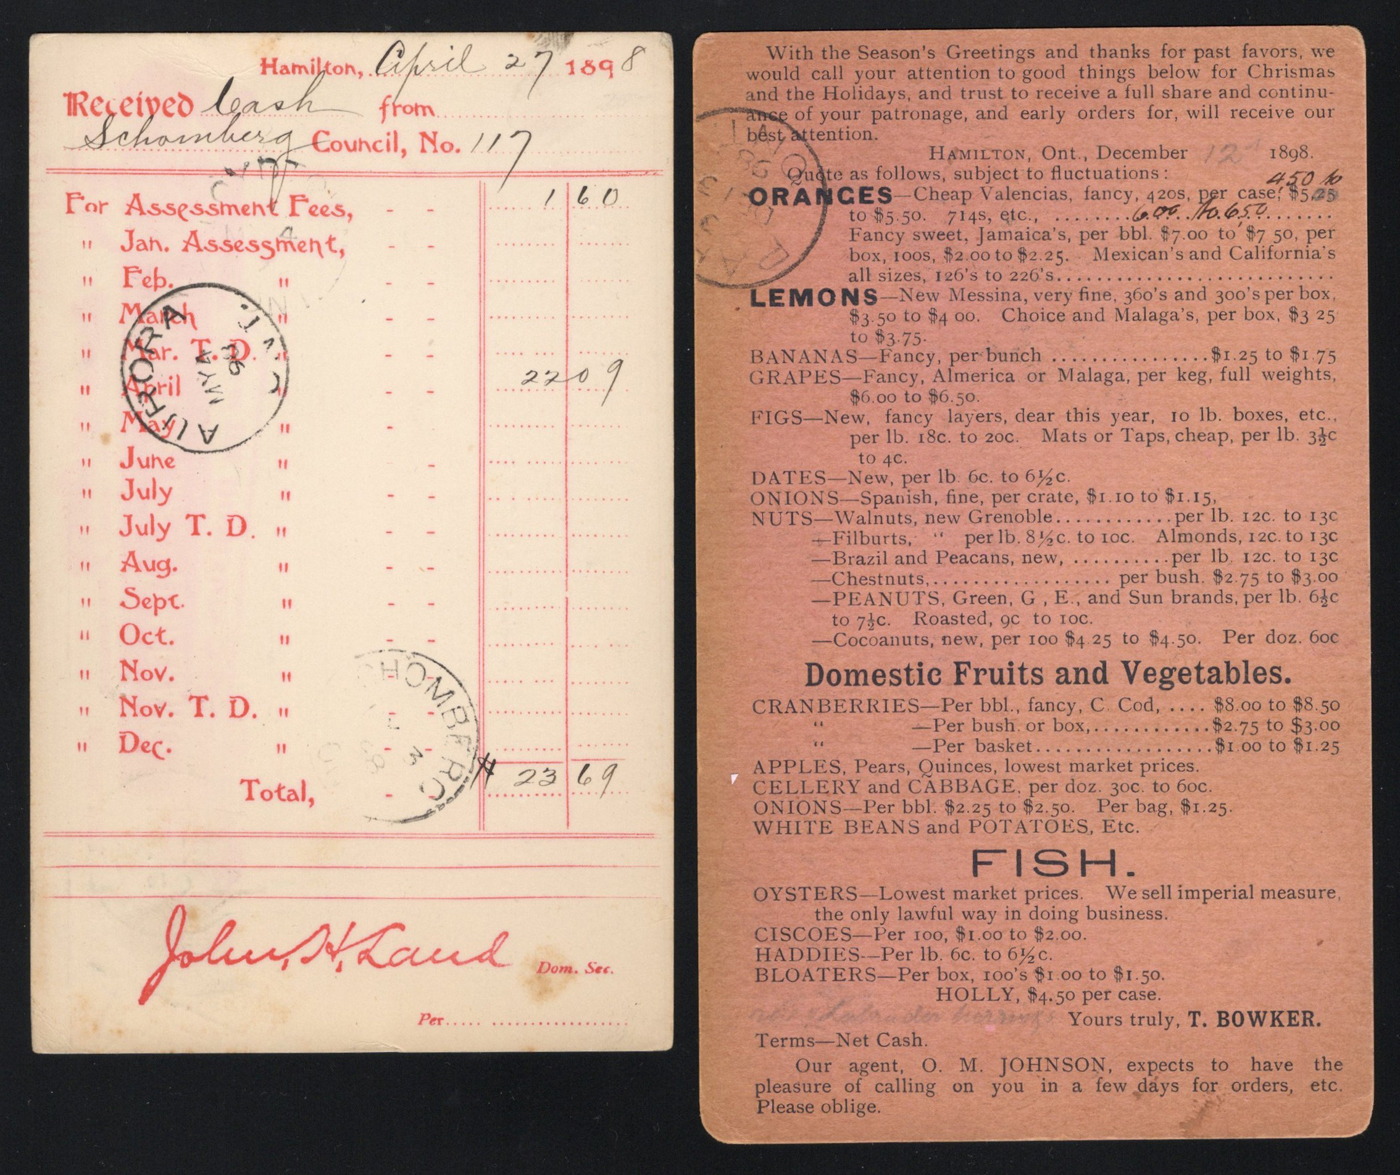 Hamilton, April 27 1898
Received Cash from
Schomberg Council, No. 117
For Assessment Fees, - - 1 60
" Jan. Assessment, - -
" Feb. " - -
" March " - -
" Mar. T. D. " - -
" April " - - 22 09
" May " - -
" June " - -
" July " - -
" July T. D. " - -
" Aug. " - -
" Sept. " - -
" Oct. " - -
" Nov. " - -
" Nov. T. D. " - -
" Dec. " - -
Total, - - # 23 69
John H. Land Dom. Sec.
Per
AURORA
ONT.
MY 4
98
SCHOMBERG
With the Season's Greetings and thanks for past favors, we
would call your attention to good things below for Chrismas
and the Holidays, and trust to receive a full share and continu-
ance of your patronage, and early orders for, will receive our
best attention.
HAMILTON, Ont., December 12 1898.
Quote as follows, subject to fluctuations:
ORANGES—Cheap Valencias, fancy, 420s, per case, $5.25 450 to
to $5.50. 714s, etc., ........ 6.00. to 6.50 ........
Fancy sweet, Jamaica's, per bbl. $7.00 to $7 50, per
box, 100s, $2.00 to $2.25. Mexican's and California's
all sizes, 126's to 226's............................
LEMONS—New Messina, very fine, 360's and 300's per box,
$3.50 to $4 00. Choice and Malaga's, per box, $3 25
to $3.75.
BANANAS—Fancy, per bunch ................$1.25 to $1.75
GRAPES—Fancy, Almerica or Malaga, per keg, full weights,
$6.00 to $6.50.
FIGS—New, fancy layers, dear this year, 10 lb. boxes, etc.,
per lb. 18c. to 20c. Mats or Taps, cheap, per lb. 3½c
to 4c.
DATES—New, per lb. 6c. to 6½c.
ONIONS—Spanish, fine, per crate, $1.10 to $1.15,
NUTS—Walnuts, new Grenoble............per lb. 12c. to 13c
—Filburts, " per lb. 8½c. to 10c. Almonds, 12c. to 13c
—Brazil and Peacans, new, ..........per lb. 12c. to 13c
—Chestnuts,.................. per bush. $2.75 to $3.00
—PEANUTS, Green, G , E., and Sun brands, per lb. 6½c
to 7½c. Roasted, 9c to 10c.
—Cocoanuts, new, per 100 $4 25 to $4.50. Per doz. 60c
Domestic Fruits and Vegetables.
CRANBERRIES—Per bbl., fancy, C. Cod, .... $8.00 to $8.50
" —Per bush or box,............$2.75 to $3.00
" —Per basket..................$1.00 to $1.25
APPLES, Pears, Quinces, lowest market prices.
CELLERY and CABBAGE, per doz. 30c. to 60c.
ONIONS—Per bbl. $2.25 to $2.50. Per bag, $1.25.
WHITE BEANS and POTATOES, Etc.
FISH.
OYSTERS—Lowest market prices. We sell imperial measure,
the only lawful way in doing business.
CISCOES—Per 100, $1.00 to $2.00.
HADDIES—Per lb. 6c. to 6½c.
BLOATERS—Per box, 100's $1.00 to $1.50.
HOLLY, $4.50 per case.
Labrador herrings Yours truly, T. BOWKER.
Terms—Net Cash.
Our agent, O. M. JOHNSON, expects to have the
pleasure of calling on you in a few days for orders, etc.
Please oblige.